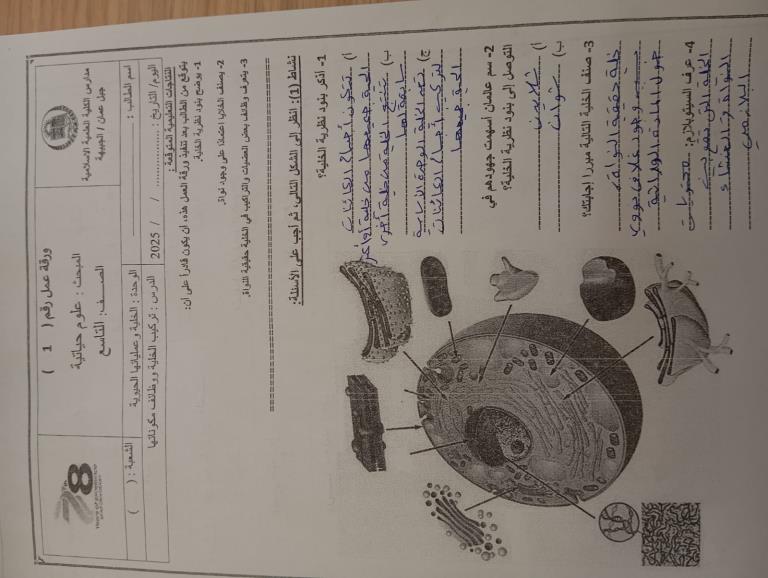 مدارس الكلية العلمية الاسلامية
جبل عمان / الجبيهة
ورقة عمل رقم ( 1 )
المبحث : علوم حياتية
الصف: التاسع
78
اسم الطالب :
الوحدة : الخلية و عملياتها الحيوية
الشعبة : ( )
اليوم/ التاريخ : ................ / / 2025
الدرس : تركيب الخلية ووظائف مكوناتها
النتاجات التعليمية المتوقعة :
يتوقع من الطالب بعد تنفيذ ورقة العمل هذه، ان يكون قادرا على ان:
1- يوضح بنود نظرية الخلية.
2- يصنف الخلايا اعتمادًا على وجود نواة.
3- يتعرف وظائف بعض العضيات والتراكيب في الخلية حقيقية النواة.
نشاط (1): أنظر إلى الشكل التالي، ثم أجب على الأسئلة:
1- أذكر بنود نظرية الخلية؟
أ) تتكون أجسام الكائنات
الحية جميعها من خلية أو أكثر
ب) تنتج الخلية من خلية أخرى
سابقة لها
ج) تعد الخلية الوحدة الأساسية
لتركيب أجسام الكائنات
الحية جميعها
2- سم عالمان اسهمت جهودهم في
التوصل إلى بنود نظرية الخلية؟
أ) شلايدن
ب) شوان
3- صنف الخلية التالية مبررا إجابتك؟
خلية حقيقية النواة،
بسبب وجود غلاف نووي
حول المادة الوراثية
4- عرف السيتوبلازم: محتويات
الخلية التي تقع بين
النواة و الغشاء
البلازمي